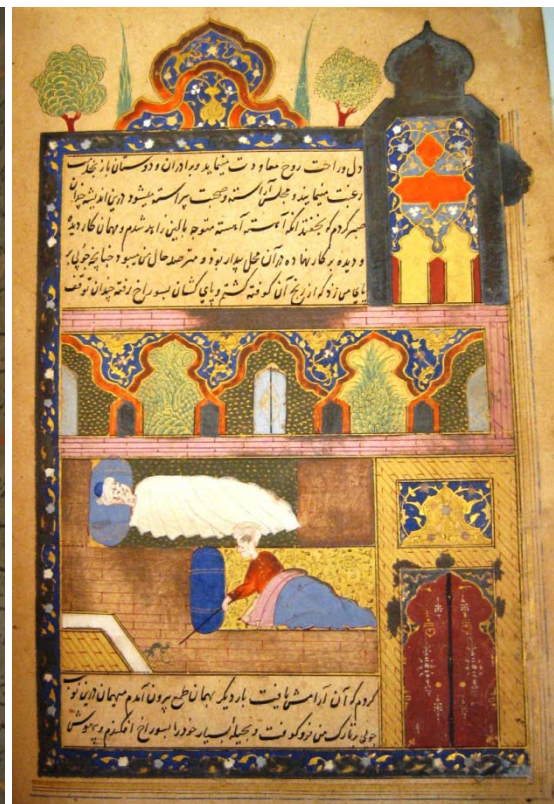 دل و راحت روح معاودت مینماید و برادران و دوستان باز بجذب
رغبت مینمایند و مجلس آراسته و صحبت پیراسته میشود درین اندیشه چندان
صبر کردم که بخفتند آنگه آهسته آهسته متوجه بالین زاهد شدم و مهمان کار دیده
و دیده بر کار نهاده در آن محل بیدار بود و مترصد حال من می بود چنانچه چوبی بر
پای من زد که از رنج آن کوفته گشتم و پای کشان بسوراخ رفته چندان توقف
کردم که آن آرامش یافت بار دیگر بهمان طمع بیرون آمدم میهمان درین نوبت
چوبی بر تارک من فرو کوفت و بحیلهٔ بسیار خود را بسوراخ افکندم و بیهوش